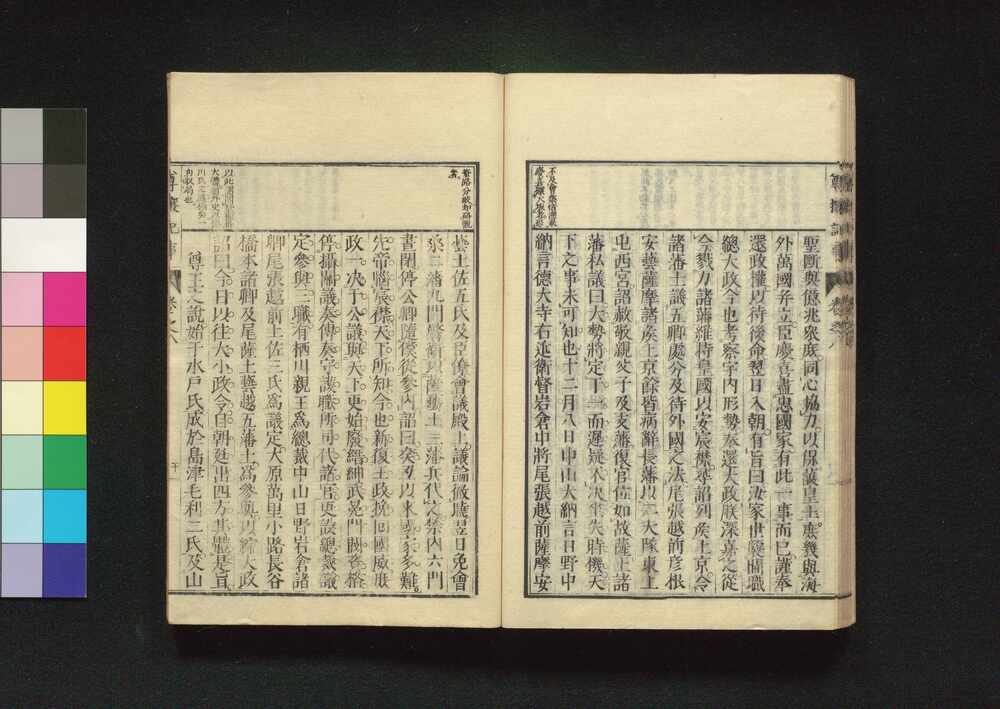 聖斷與億兆衆庶同心協力以保護皇土應幾與海
外萬國并立臣慶喜盡忠國家有此一事而已謹奉
還政權以待後命翌日入朝有旨曰汝家世襲關職
總大政今也考察宇内形勢奉還大政朕深嘉之從
今戮力諸藩維持皇國以安宸襟并詔列侯上京令
諸藩士議五卿處分及待外國之法尾張越前彦根
安藝薩摩諸侯上京餘皆病辭長藩以二大隊東上
屯西宮詔赦敬親父子及支藩復官位如故薩土諸
藩私議曰大勢將定于一而遲疑不決坐失時機天
下之事未可知也十二月八日中山大納言日野中
納言德大寺右近衛督岩倉中將尾張越前薩摩安
藝土佐五氏及臣僚會議殿上議論徹曉翌日免會
桑二藩九門警衛以薩藝土三藩兵代之禁内六門
晝閉停公卿隨僚從參内詔曰癸丑以來國家多難
先帝惱宸襟天下所知今也新復王政挽回國威
政一決于公議與天下更始廢搢紳武弁門閥格
停攝關議奏傳奏守護職所司代諸官更設總裁議
定參與三職有栖川親王爲總裁中山日野岩倉諸
卿尾張越前土佐三氏爲議定大原萬里小路長谷
橋本諸卿及尾薩土藝越五藩士爲參與以綜大政
詔曰今日以往大小政令自朝廷出四方其體是旨
尊王之說始于水戸氏成於島津毛利二氏及山
尊攘紀事
卷之八